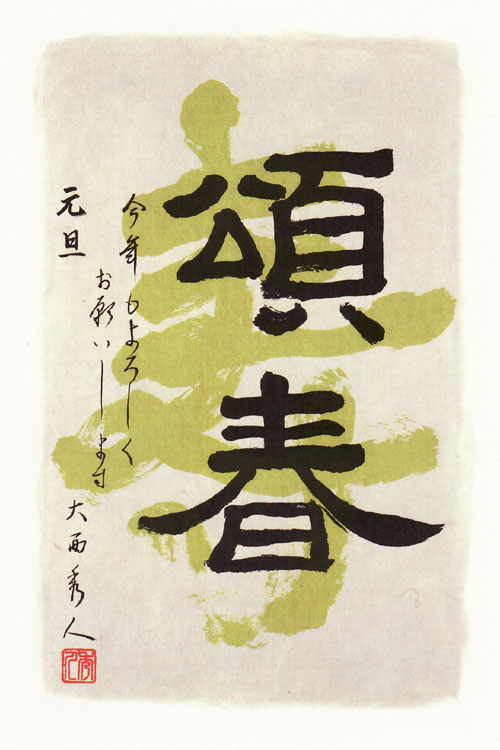 頌春
今年もよろしく
お願いします
元旦
大西秀人